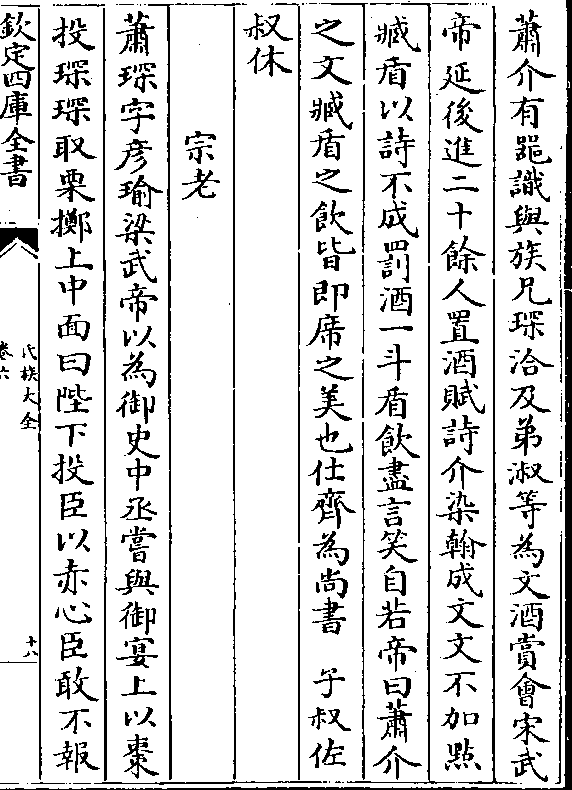 蕭介有噐識與族兄琛洽及弟淑等為文酒賞㑹宋武
帝延後進二十餘人置酒賦詩介染翰成文文不加㸃
臧盾以詩不成罰酒一斗盾飲盡言笑自若帝曰蕭介
之文臧盾之飲皆即席之美也仕齊為尚書 子叔佐
叔休
宗老
蕭琛字彦瑜梁武帝以為御史中丞嘗與御宴上以棗
投琛琛取栗擲上中面曰陛下投臣以赤心臣敢不報
欽定四庫全書
氏族大全
卷六
十八